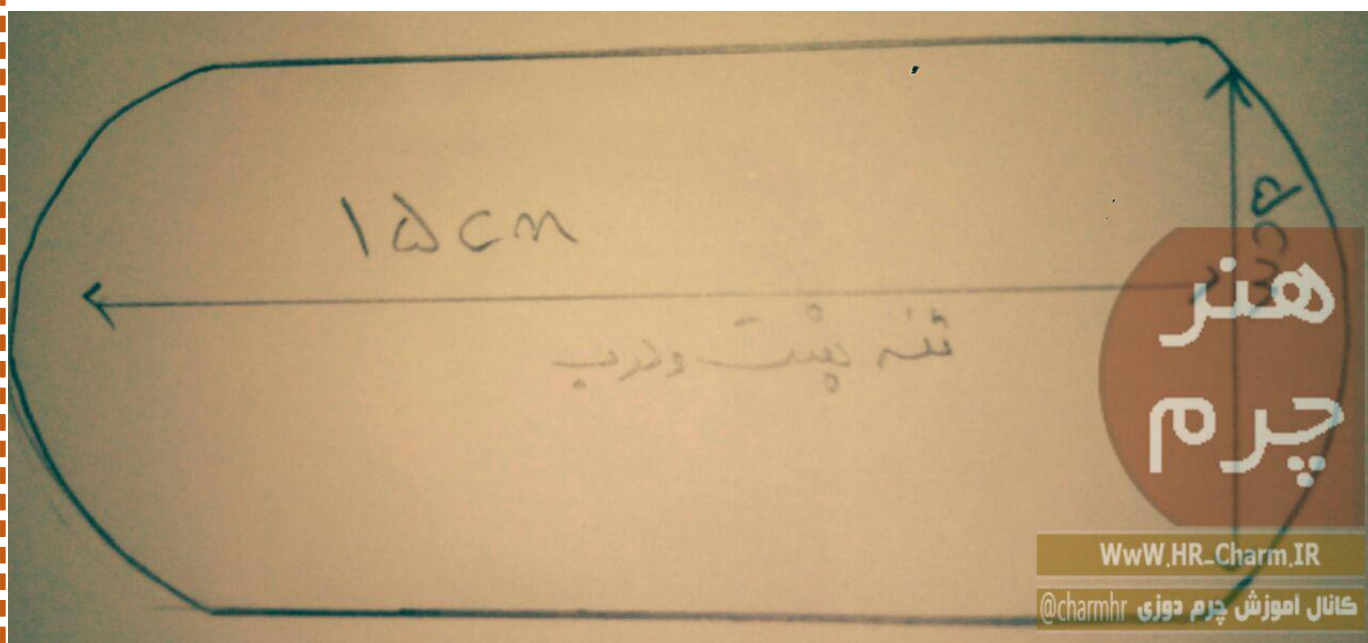 ۱۵cm
۵cm
تنه پشت و درب
هنر
چرم
WwW.HR_Charm.IR
کانال آموزش چرم دوزی @charmhr